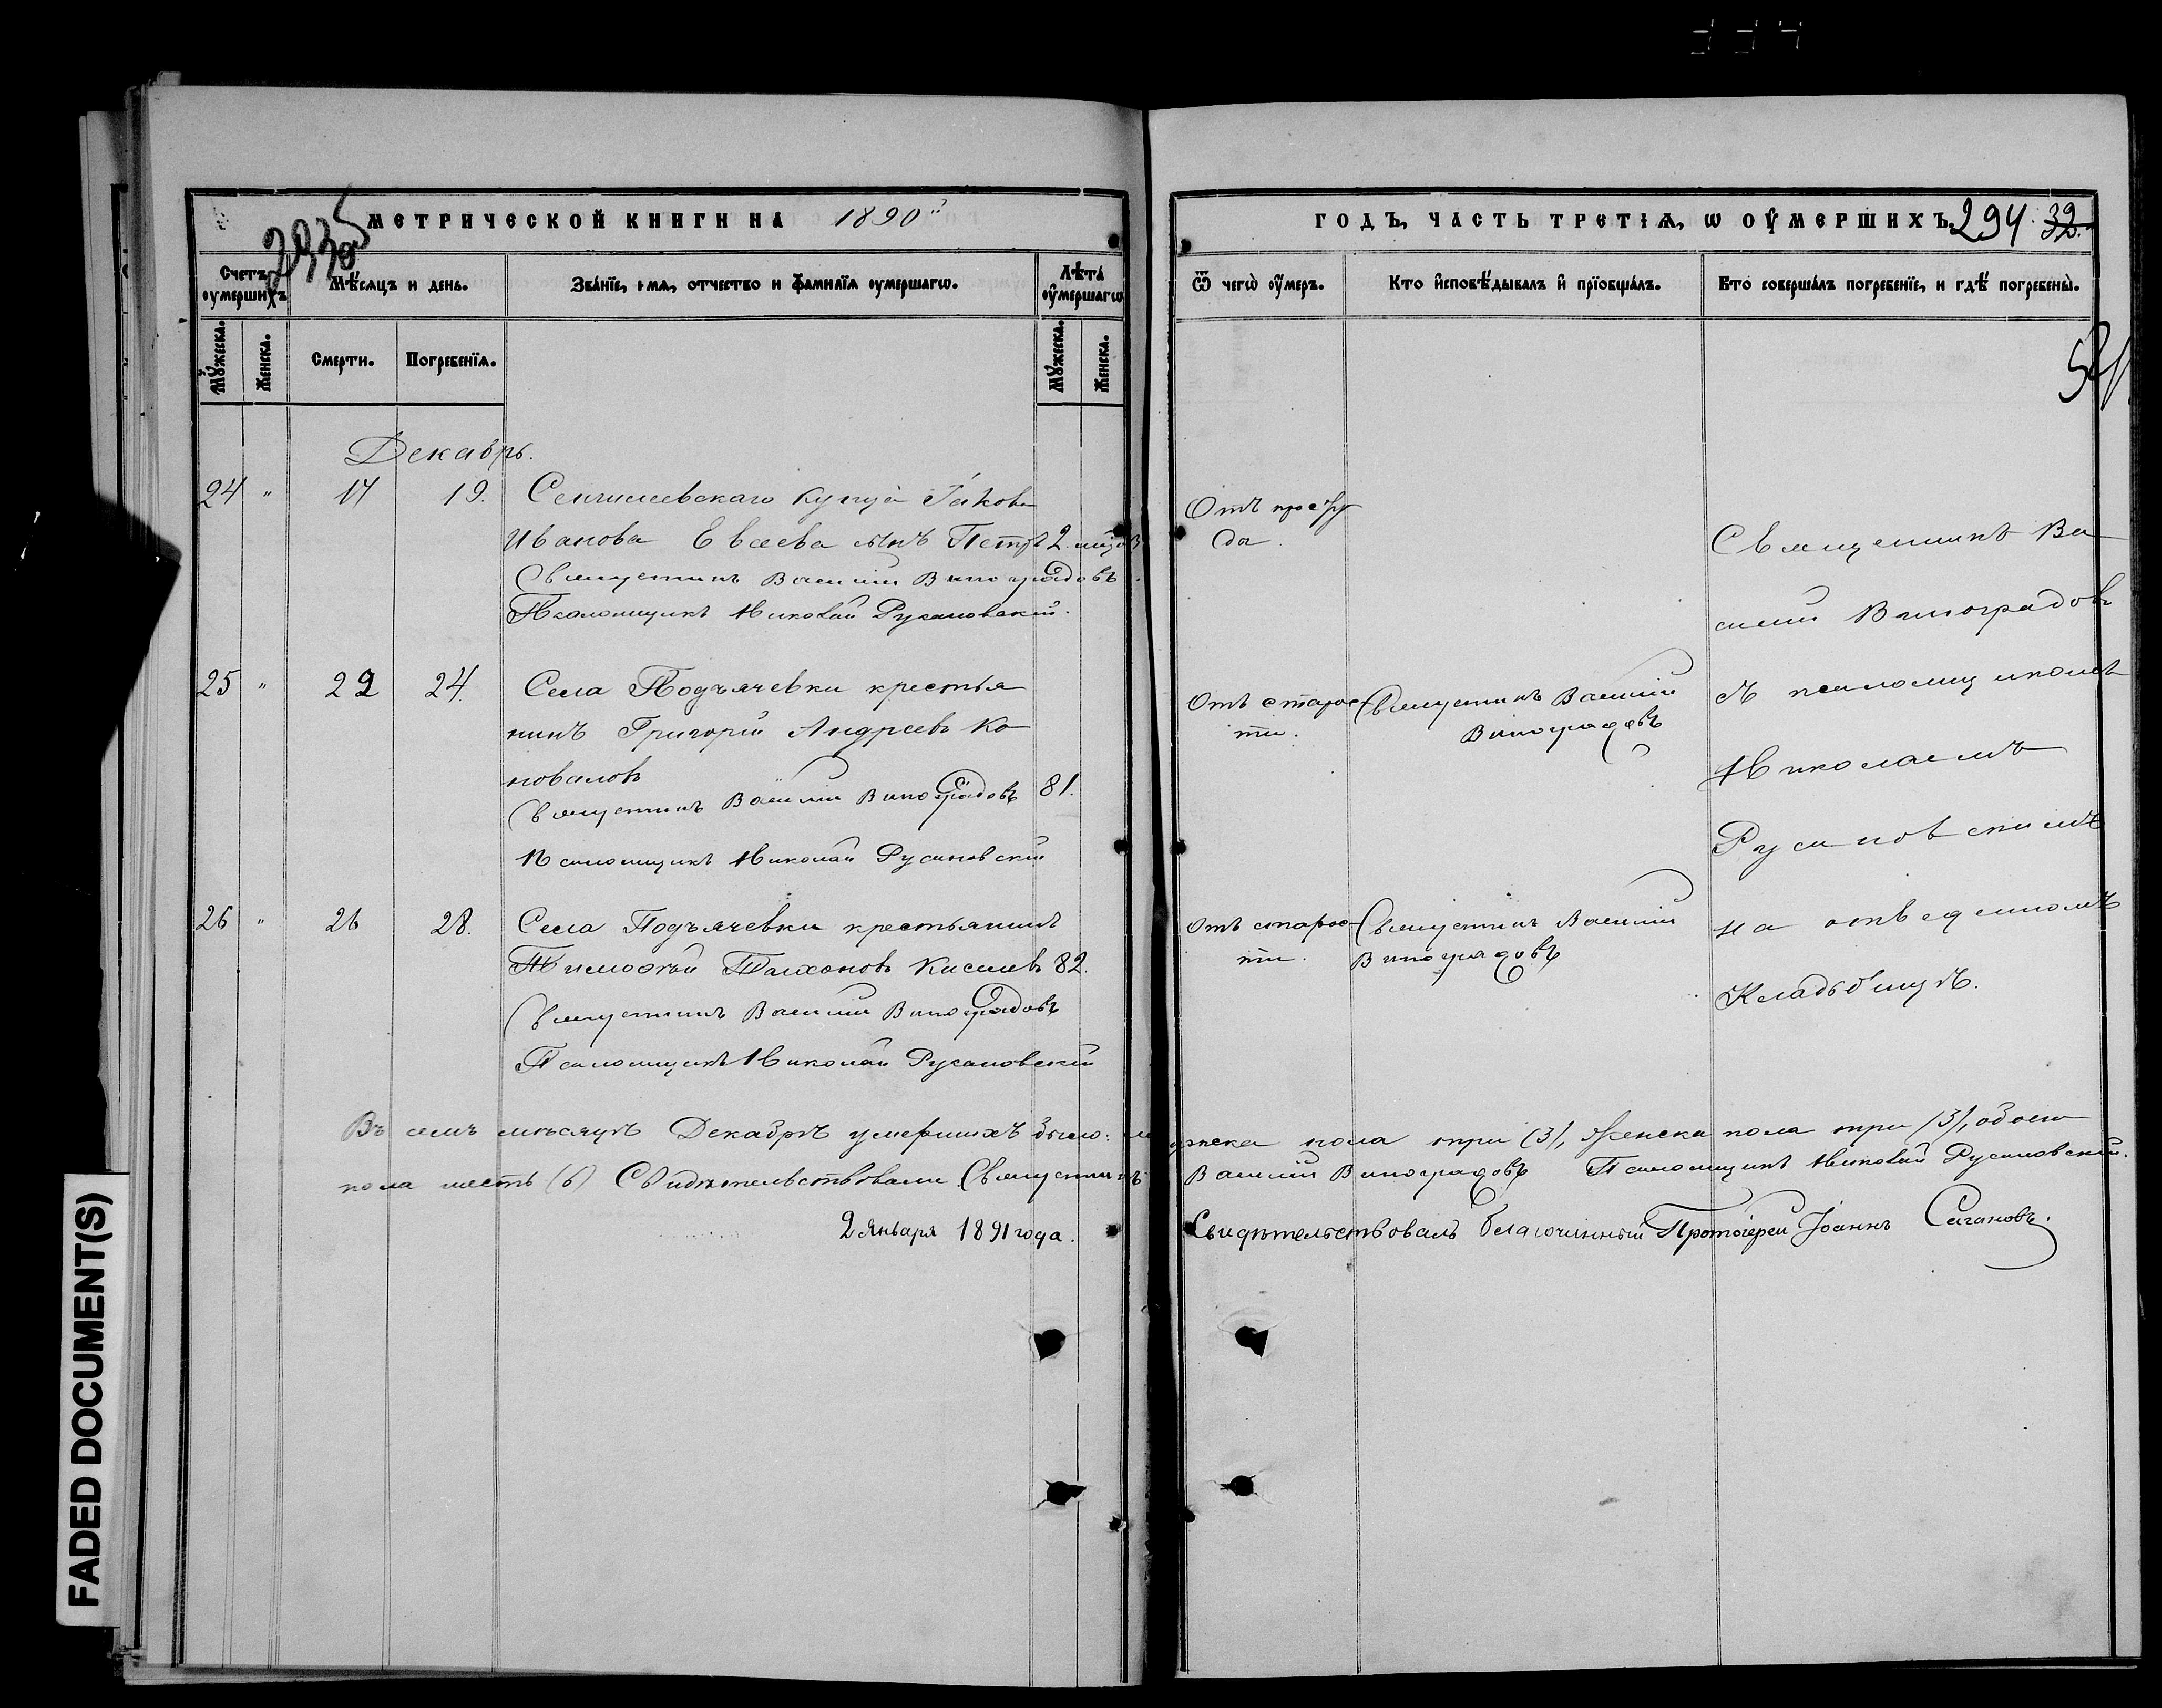 МЕТРИЧЕСКОЙ КНИГИ НА 1890й
ГОДЪ, ЧАСТЬ ТРЕТІѦ, Ѡ ОУМЕРШИХЪ. 294. 32.
Счетъ оумершихъ
Мѣсѧцъ и день.
Званіе, имѧ, отчество и фамиліѧ оумершагѡ.
Лѣта оумершагѡ
Ѿ чегѡ оумеръ.
Кто исповѣдывалъ и пріобщалъ.
Кто совершалъ погребеніе, и гдѣ погребены.
Мужеска.
Женска.
Смерти.
Погребеніѧ.
Мужеска.
Женска.
Декабрь.
24 " 17 19. Сенгилеевскаго купца Іакова
Иванова Евсеева сынъ Петръ 2.
Священникъ Василій Виноградовъ.
Псаломщикъ Николай Русановскій.
Отъ просту
ды.
25 " 22 24. Села Подъячевки крестья
нинъ Григорій Андреевъ Ко
новаловъ 81.
Священникъ Василій Виноградовъ
Псаломщикъ Николай Русановскій
Отъ старос-
ти.
Священникъ Василій
Виноградовъ
26 " 26 28. Села Подъячевки крестьянинъ
Тимофей Киселевъ 82.
Священникъ Василій Виноградовъ
Псаломщикъ Николай Русановскій
Отъ старос-
ти.
Священникъ Василій
Виноградовъ
Священникъ Ва
силій Виноградовъ
съ псаломщикомъ
Николаемъ
Русановскимъ
на отведенномъ
кладбищѣ.
Въ семъ мѣсяцѣ Декабрѣ умершихъ было: мужеска пола три (3), женска пола три (3), обоего
пола шесть (6) Свидѣтельствовали Священникъ Василій Виноградовъ Псаломщикъ Николай Русановскій.
2 Января 1891 года. Свидѣтельствовалъ благочинный Протоіерей Іоаннъ Сагановъ.
FADED DOCUMENT(S)